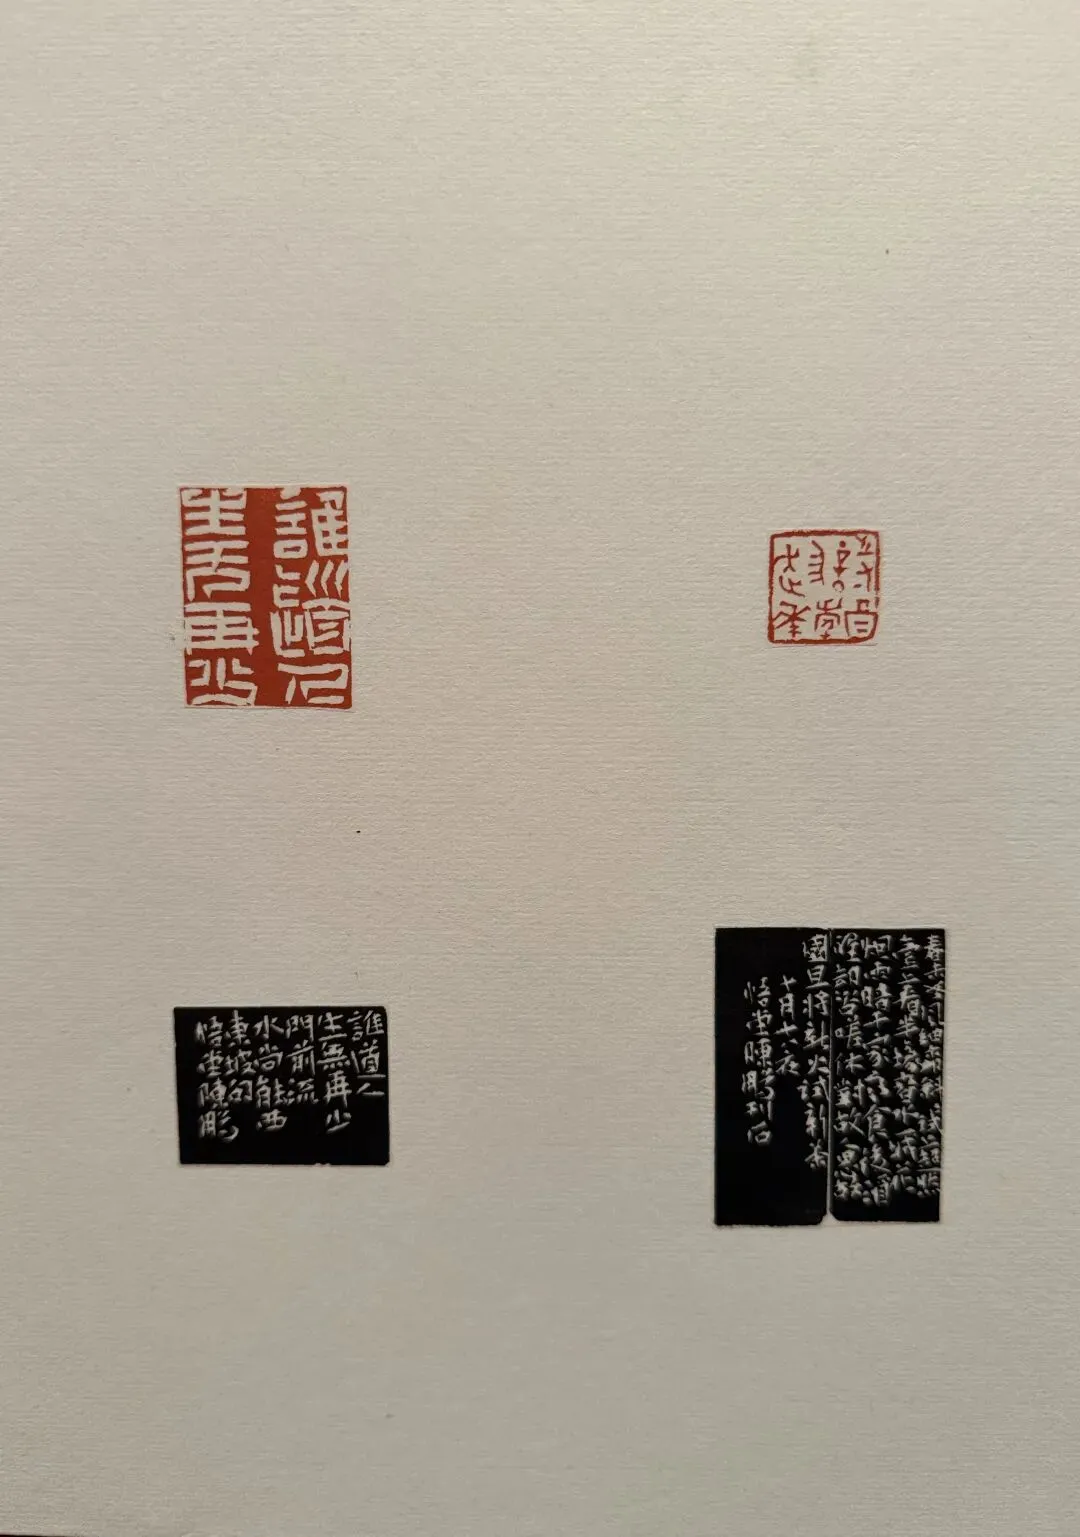 誰道人
生无再少
誰道人
生無再少
門前流
水尚能西
東坡句
悟堂陳鵬
春未老風細柳斜斜試上超然
臺上看半壕春水一城花
烟雨暗千家寒食後酒
醒卻咨嗟休對故人思故
國且將新火試新茶
十月十六夜
悟堂陳鵬刊石